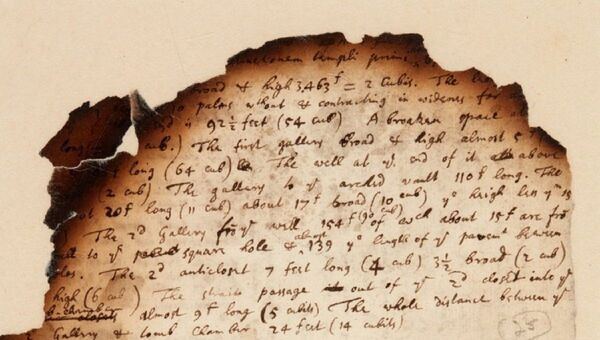 templi
broad & high 3,463f = 2 Cubits. The
palms without & contracting in wideness for
is 92½ feet (54 cub) A broaken space
cub.) The first gallery broad & high almost 5
long (64 cub) The well at ye end of it above
2 cub) The gallery to ye arched vault 110f long. The
20f long (11 cub) about 17f broad (10 cub) ye heigh less yn 15
The 2d Gallery frō ye well 154f (90 cub) of each about 15f are frō
to ye square hole & almost 139 ye length of ye pavemt between
The 2d anticloset 7 feet long (4 cub) 3½ broad (2 cub)
high (6 cub) The strait passage out of ye 2d closet into ye
almost 9f long (5 cubits) The whole distance between ye
Gallery & tomb Chamber 24 feet (14 cubits)
25